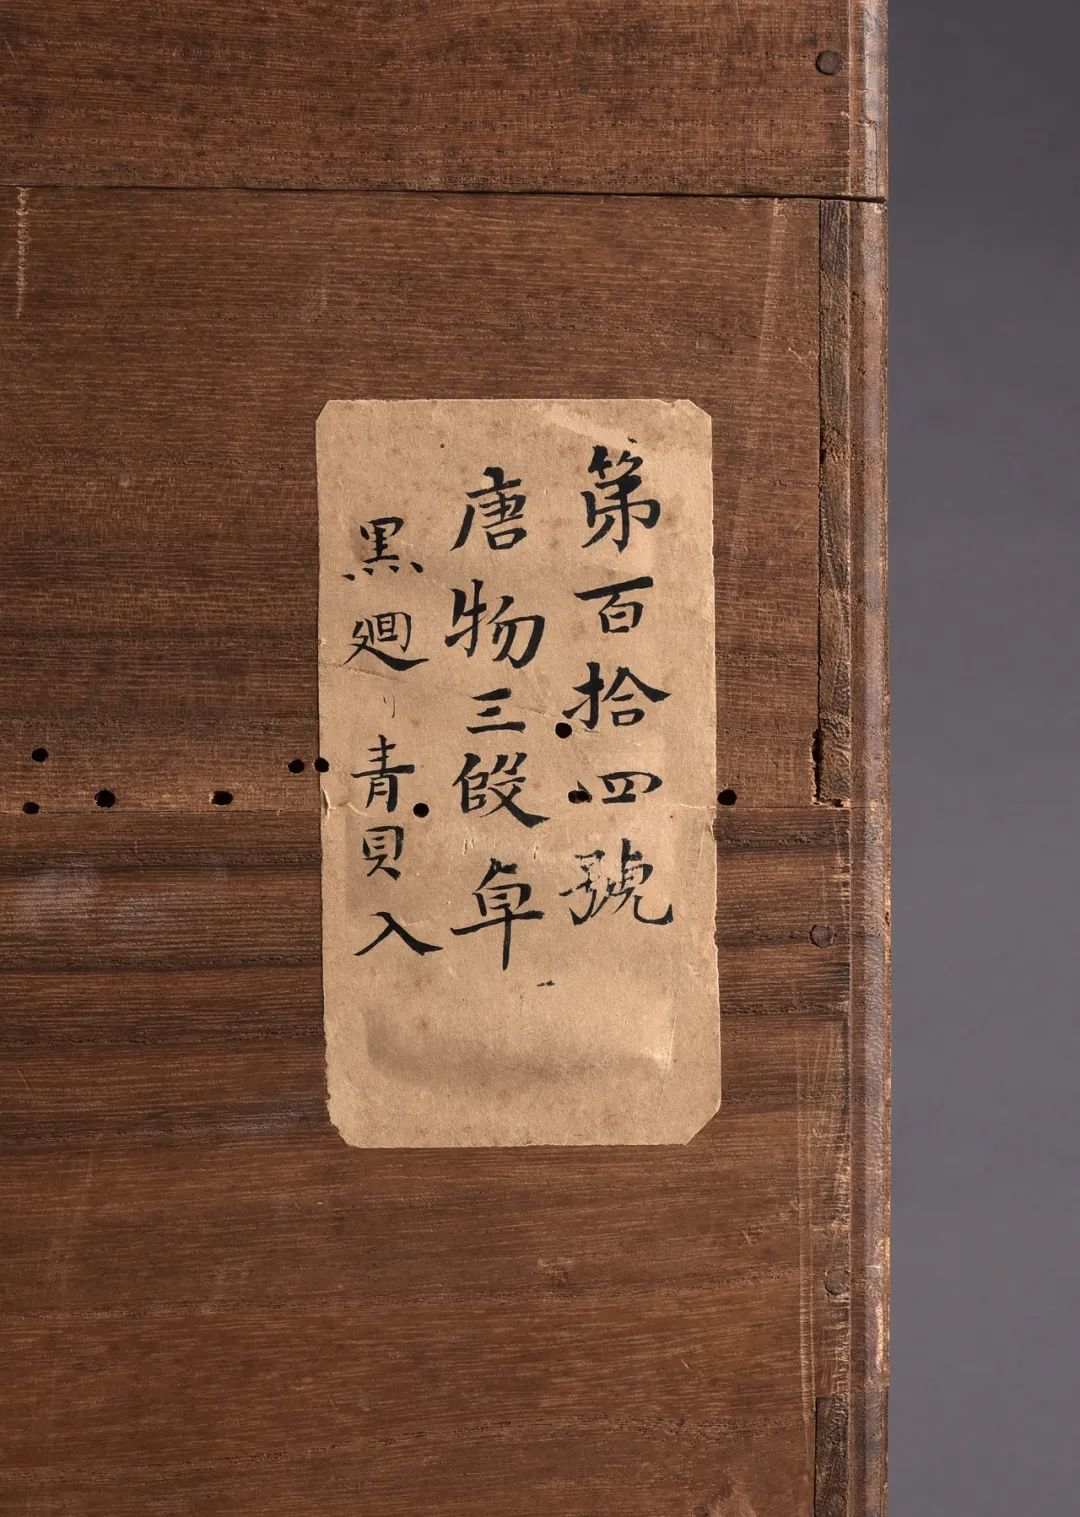 第百拾四號
唐物三段卓
黒廻り青貝入